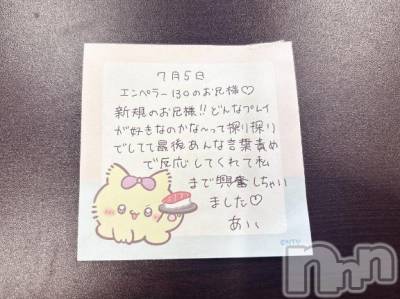 7月5日
エンペラー130のお兄様♡
新規のお兄様!!どんなプレイ
が好きなのかな〜って探り探り
でしてて最後あんな言葉責め
で反応してくれて私
まで興奮しちゃい
ました♡
あい
nnn